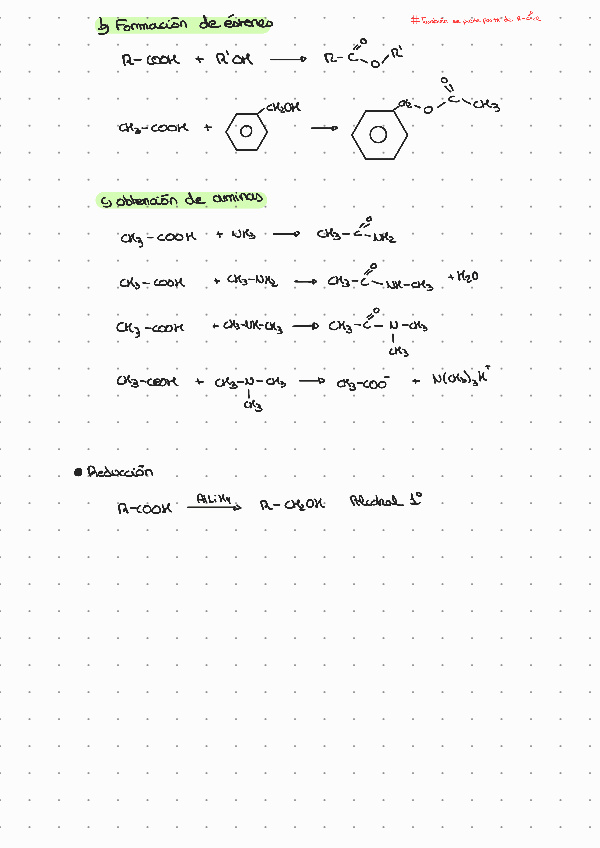 b) Formación de ésteres
# También se puede partir de R-C-Cl
R-COOH + R'OH → R-C O O R'
CH3-COOH + CH2OH → CH2 O C O CH3
c) obtención de aminas
CH3-COOH + NH3 → CH3-C O -NH2
CH3-COOH + CH3-NH2 → CH3-C O -NH-CH3 + H2O
CH3-COOH + CH3-NH-CH3 → CH3-C O -N-CH3 CH3
CH3-COOH + CH3-N-CH3 CH3 → CH3-COO⁻ + N(CH3)3H⁺
• Reducción
R-COOH AlLiH4 → R-CH2OH Alcohol 1º